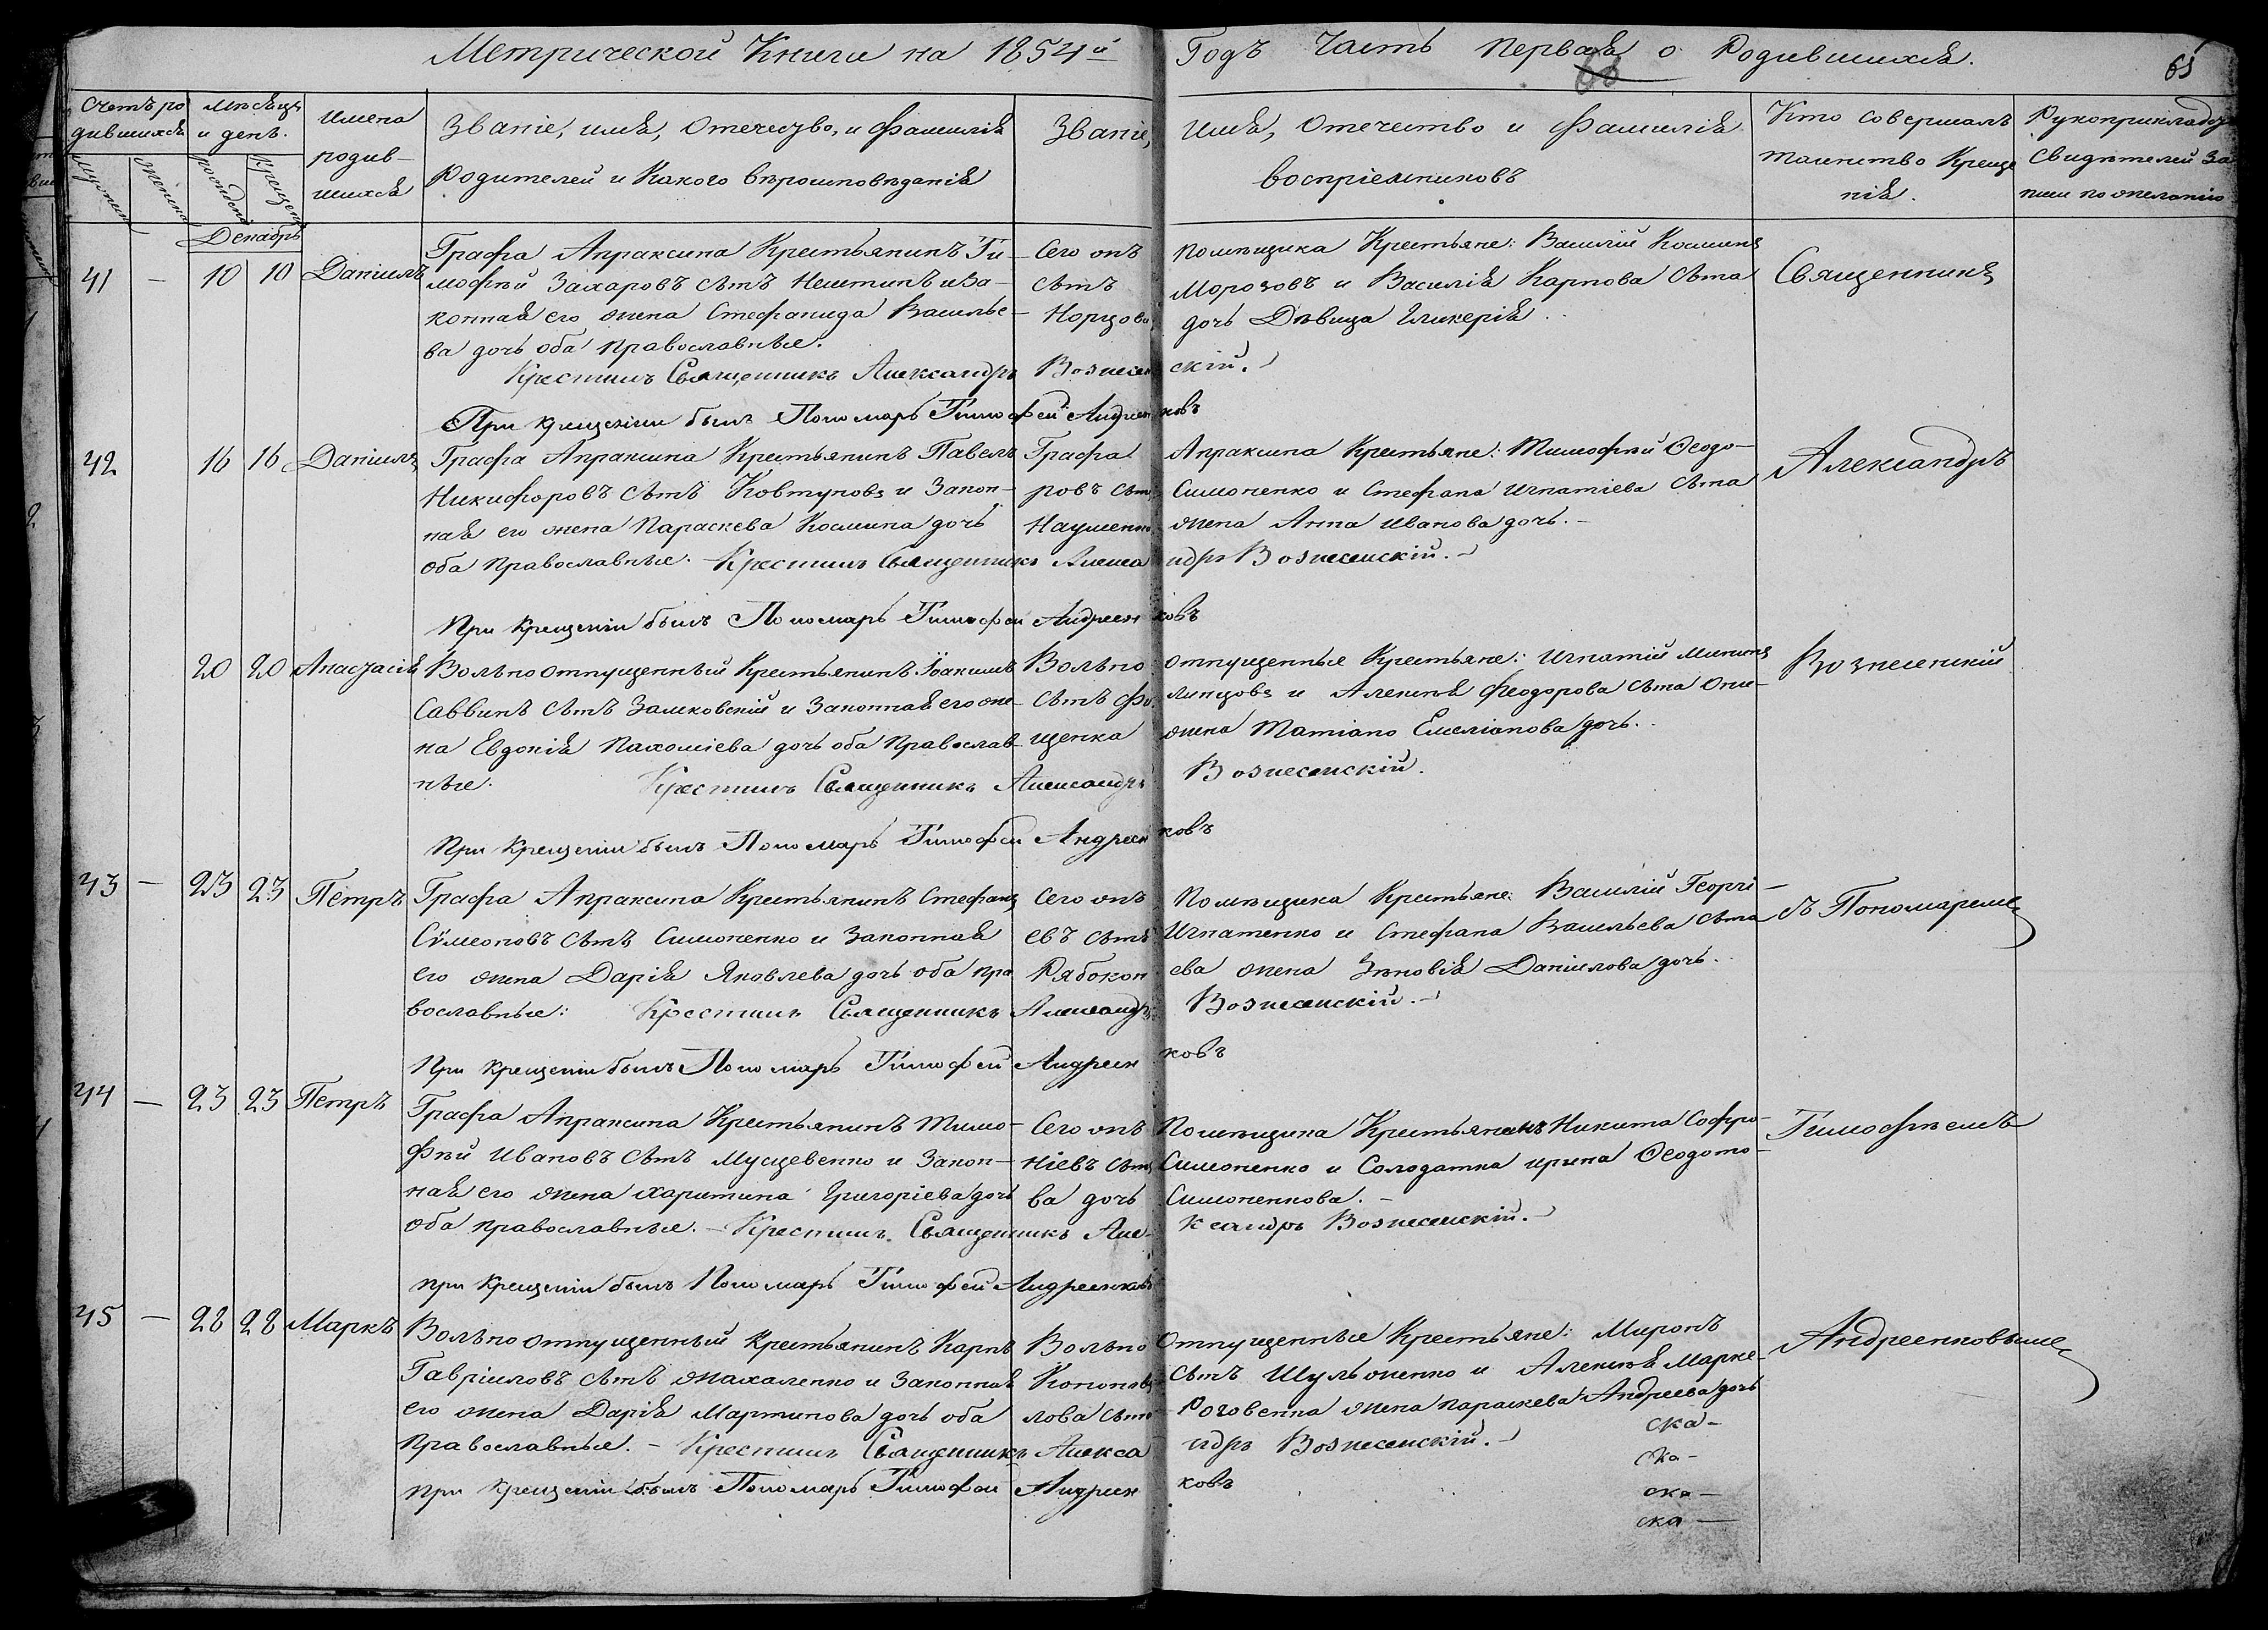 Метрической Книги на 1854й Годъ Часть Первая о Родившихся.
65
Счетъ родившихся
Мѣсяцъ и день.
Имена родившихся
Званіе, имя, Отечество, и Фамилія Родителей и Какого вѣроисповѣданія
Званіе, имя, Отечество и Фамилія воспріемниковъ
Кто совершалъ таинство Крещенія.
Рукоприкладство свидѣтелей записи по желанію
Декабрь
41 — 10 10 Даніилъ
Графа Апраксина Крестьянинъ Ти-
мофѣй Захаровъ сынъ и За-
конная его жена Стефанида Василье-
ва дочь оба православные.
Сего онъ Помѣщика Крестьяне: Василій Косминъ
сынъ Морозовъ и Василія Карпова сына
дочь Дѣвица Гликерія.
Крестилъ Священникъ Александръ Вознесенскій.
При крещеніи былъ Пономарь Тимофей Андреенковъ
42 16 16 Даніилъ
Графа Апраксина Крестьянинъ Павелъ
Никифоровъ сынъ Ковтуновъ и Закон-
ная его жена Параскева Космина дочь
оба православные.
Графа Апраксина Крестьяне: Тимофѣй Ѳеодо-
ровъ сынъ Симоненко и Стефана Игнатіева сына
Науменко жена Анна Иванова дочь.
Крестилъ Священникъ Александръ Вознесенскій.
При крещеніи былъ Пономарь Тимофей Андреенковъ
20 20 Анастасія
Вольноотпущенный Крестьянинъ Іоакимъ
Саввинъ сынъ Замковскій и Законная его же-
на Евдокія Пахоміева дочь оба православ-
ные.
Вольноотпущенные Крестьяне: Игнатій Мининъ
сынъ Филипцовъ и Алексѣя Феодорова сына Они-
щенка жена Татіана Емеліанова дочь.
Крестилъ Священникъ Александръ Вознесенскій.
При крещеніи былъ Пономарь Тимофей Андреенковъ
43 — 23 23 Петръ
Графа Апраксина Крестьянинъ Стефанъ
Сѵмеоновъ сынъ Симоненко и Законная
его жена Дарія Яковлева дочь оба пра-
вославные:
Сего онъ Помѣщика Крестьяне: Василій Георгі-
евъ сынъ Игнатенко и Стефана Васильева сына
Рябоконева жена Зѣновія Даніилова дочь.
Крестилъ Священникъ Александръ Вознесенскій.
При крещеніи былъ Пономарь Тимофей Андреенковъ
44 — 23 23 Петръ
Графа Апраксина Крестьянинъ Тимо-
фѣй Ивановъ сынъ Мущевенко и Закон-
ная его жена Харитина Григоріева дочь
оба православные.
Сего онъ Помѣщика Крестьянинъ Никита Софро-
ніевъ сынъ Симоненко и Солодатка Ирина Ѳеодото-
ва дочь Симоненкова.
Крестилъ Священникъ Александръ Вознесенскій.
при крещеніи былъ Пономарь Тимофей Андреенковъ
45 — 28 28 Маркъ
Вольноотпущенный Крестьянинъ Карпъ
Гавріиловъ сынъ Жахаленко и Законная
его жена Дарія Мартинова дочь оба
православные.
Вольноотпущенные Крестьяне: Миронъ
Кононовъ сынъ Шульженко и Алексѣя Марке-
лова сына Роговенка жена Параскева Андреева дочь
Крестилъ Священникъ Александръ Вознесенскій.
при крещеніи былъ Пономарь Тимофей Андреенковъ
Священникъ
Александръ
Вознесенскій
съ Пономаремъ
Тимофѣемъ
Андреенковымъ
ска-
ска-
ска-
ска-